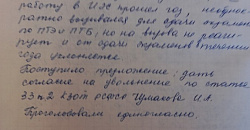 работу в ИЭС прошел год, неоднок-
ратно вызывался для сдачи экзамена
по ПТЭ и ПТБ, но на вызова не реаги-
рует и от сдачи экзаменов в течении
года уклоняется.
Поступило предложение: дать
согласие на увольнение по статье
33 п 2 КЗОТ РСФСР Чумакова И.А.
Проголосовали единогласно.